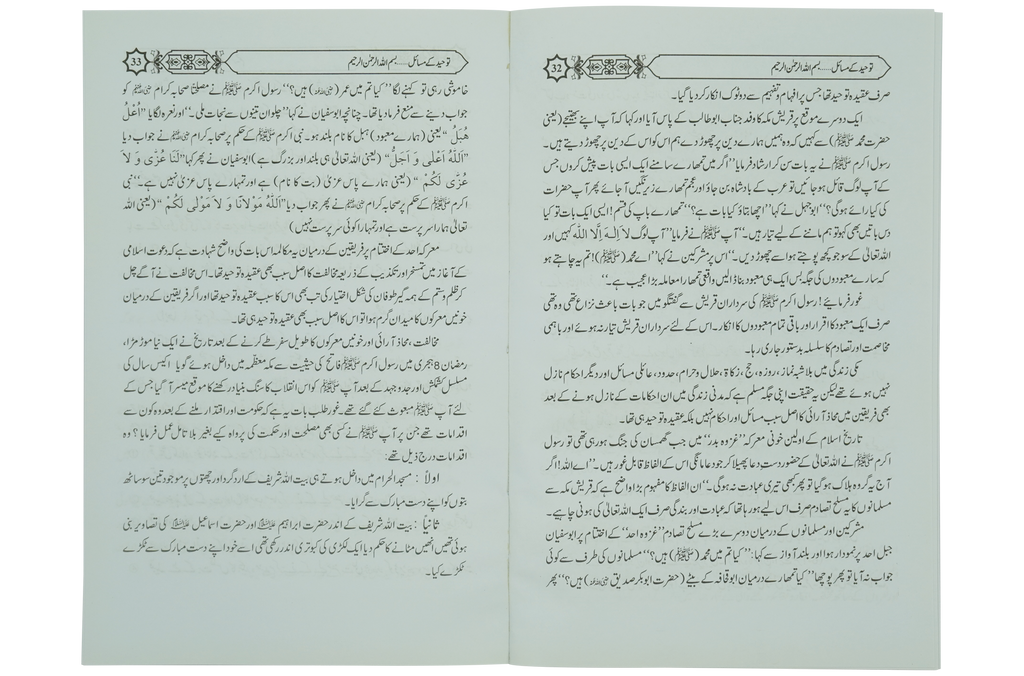 توحید کے مسائل ..... بسم اللہ الرحمٰن الرحیم
32
صرف عقیدہ توحید تھا جس پر افہام و تفہیم سے دوٹوک انکار کر دیا گیا۔
ایک دوسرے موقع پر قریش مکہ کا وفد جناب ابوطالب کے پاس آیا اور کہا کہ آپ اپنے بھتیجے (یعنی
حضرت محمد ﷺ) سے کہیں کہ وہ ہمیں ہمارے دین پر چھوڑ دے ہم اس کو اس کے دین پر چھوڑ دیتے ہیں۔
رسول اکرم ﷺ نے یہ بات سن کر ارشاد فرمایا ’’اگر میں تمہارے سامنے ایک ایسی بات پیش کروں جس
کے آپ لوگ قائل ہو جائیں تو عرب کے بادشاہ بن جاؤ اور عجم تمہارے زیرنگیں آ جائے پھر آپ حضرات
کی کیا رائے ہو گی؟‘‘ ابوجہل نے کہا ’’اچھا بتاؤ کیا بات ہے؟‘‘ تمہارے باپ کی قسم! ایسی ایک بات تو کیا
دس باتیں بھی کہو تو ہم ماننے کے لیے تیار ہیں۔‘‘ آپ ﷺ نے فرمایا ’’آپ لوگ لَا اِلٰہَ اِلَّا اللّٰہُ کہیں اور
اللہ تعالیٰ کے سوا جو کچھ پوجتے ہو اسے چھوڑ دیں۔‘‘ اس پر مشرکین نے کہا ’’اے محمد (ﷺ)! تم یہ چاہتے ہو
کہ سارے معبودوں کی جگہ بس ایک ہی معبود بنا ڈالیں واقعی تمہارا معاملہ بڑا عجیب ہے۔‘‘
غور فرمائیے! رسول اکرم ﷺ کی سرداران قریش سے گفتگو میں جو بات باعث نزاع تھی وہ تھی
صرف ایک معبود کا اقرار اور باقی تمام معبودوں کا انکار۔ اس کے لئے سرداران قریش تیار نہ ہوئے اور باہمی
مخاصمت اور تصادم کا سلسلہ بدستور جاری رہا۔
مکی زندگی میں بلاشبہ نماز، روزہ، حج، زکاۃ، حلال و حرام، حدود، عائلی مسائل اور دیگر احکام نازل
نہیں ہوئے تھے لیکن یہ حقیقت اپنی جگہ مسلم ہے کہ مدنی زندگی میں ان احکامات کے نازل ہونے کے بعد
بھی فریقین میں محاذ آرائی کا اصل سبب مسائل اور احکام نہیں بلکہ عقیدہ توحید ہی تھا۔
تاریخ اسلام کے اولین خونی معرکہ ’’غزوہ بدر‘‘ میں جب گھمسان کی جنگ ہو رہی تھی تو رسول
اکرم ﷺ نے اللہ تعالیٰ کے حضور دست دعا پھیلا کر جو دعا مانگی اس کے الفاظ قابل غور ہیں۔ ’’اے اللہ! اگر
آج یہ گروہ ہلاک ہو گیا تو پھر کبھی تیری عبادت نہ ہوگی۔‘‘ ان الفاظ کا مفہوم بڑا واضح ہے کہ قریش مکہ سے
مسلمانوں کا یہ مسلح تصادم صرف اس لیے ہو رہا تھا کہ عبادت اور بندگی صرف ایک اللہ تعالیٰ کی ہونی چاہیے۔
مشرکین اور مسلمانوں کے درمیان دوسرے بڑے مسلح تصادم ’’غزوہ احد‘‘ کے اختتام پر ابوسفیان
جبل احد پر نمودار ہوا اور بلند آواز سے کہا: ’’کیا تم میں محمد (ﷺ) ہیں؟‘‘ مسلمانوں کی طرف سے کوئی
جواب نہ آیا تو پھر پوچھا ’’کیا تمہارے درمیان ابوقحافہ کے بیٹے (حضرت ابوبکر صدیق رضی اللہ عنہ) ہیں؟‘‘ پھر
توحید کے مسائل ..... بسم اللہ الرحمٰن الرحیم
33
خاموشی رہی تو کہنے لگا ’’کیا تم میں عمر (رضی اللہ عنہ) ہیں؟‘‘ رسول اکرم ﷺ نے مصلحتاً صحابہ کرام رضی اللہ عنہم کو
جواب دینے سے منع فرما دیا تھا۔ چنانچہ ابوسفیان نے کہا ’’چلو ان تینوں سے نجات ملی۔‘‘ اور نعرہ لگایا ’’اُعْلُ
ھُبَلُ‘‘ یعنی (ہمارے معبود) ہبل کا نام بلند ہو۔ نبی اکرم ﷺ کے حکم پر صحابہ کرام رضی اللہ عنہم نے جواب دیا
’’اَللّٰہُ اَعْلٰی وَ اَجَلُّ‘‘ (یعنی اللہ تعالیٰ ہی بلند اور بزرگ ہے) ابوسفیان نے پھر کہا ’’لَنَا عُزّٰی وَ لَا
عُزّٰی لَکُمْ‘‘ (یعنی ہمارے پاس عزیٰ (بت کا نام) ہے اور تمہارے پاس عزیٰ نہیں ہے۔‘‘ نبی
اکرم ﷺ کے حکم پر صحابہ کرام رضی اللہ عنہم نے پھر جواب دیا ’’اَللّٰہُ مَوْلَانَا وَ لَا مَوْلٰی لَکُمْ‘‘ (یعنی اللہ
تعالیٰ ہمارا سرپرست ہے اور تمہارا کوئی سرپرست نہیں)
معرکہ احد کے اختتام پر فریقین کے درمیان یہ مکالمہ اس بات کی واضح شہادت ہے کہ دعوت اسلامی
کے آغاز میں تمسخر اور تکذیب کے ذریعہ مخالفت کا اصل سبب بھی عقیدہ توحید تھا۔ اس مخالفت نے آگے چل
کر ظلم و ستم کے ہمہ گیر طوفان کی شکل اختیار کی تب بھی اس کا سبب عقیدہ توحید تھا اور اگر فریقین کے درمیان
خونیں معرکوں کا میدان گرم ہوا تو اس کا اصل سبب بھی عقیدہ توحید ہی تھا۔
مخالفت، محاذ آرائی اور خونیں معرکوں کا طویل سفر طے کرنے کے بعد تاریخ نے ایک نیا موڑ مڑا،
رمضان 8 ہجری میں رسول اکرم ﷺ فاتح کی حیثیت سے مکہ معظمہ میں داخل ہوئے گویا اکیس سال کی
مسلسل کشمکش اور جدوجہد کے بعد آپ ﷺ کو اس انقلاب کا سنگ بنیاد رکھنے کا موقع میسر آ گیا جس کے
لئے آپ ﷺ مبعوث کئے گئے تھے۔ غور طلب بات یہ ہے کہ حکومت اور اقتدار ملنے کے بعد وہ کون سے
اقدامات تھے جن پر آپ ﷺ نے کسی بھی مصلحت اور حکمت کی پرواہ کیے بغیر بلا تامل عمل فرمایا؟ وہ
اقدامات درج ذیل تھے:
اولاً : مسجد الحرام میں داخل ہوتے ہی بیت اللہ شریف کے ارد گرد اور چھتوں پر موجود تین سو ساٹھ
بتوں کو اپنے دست مبارک سے گرایا۔
ثانیاً : بیت اللہ شریف کے اندر حضرت ابراہیم علیہ السلام اور حضرت اسماعیل علیہ السلام کی تصاویر بنی
ہوئی تھیں انھیں مٹانے کا حکم دیا ایک لکڑی کی کبوتری اندر رکھی تھی اسے خود اپنے دست مبارک سے ٹکڑے
ٹکڑے کیا۔